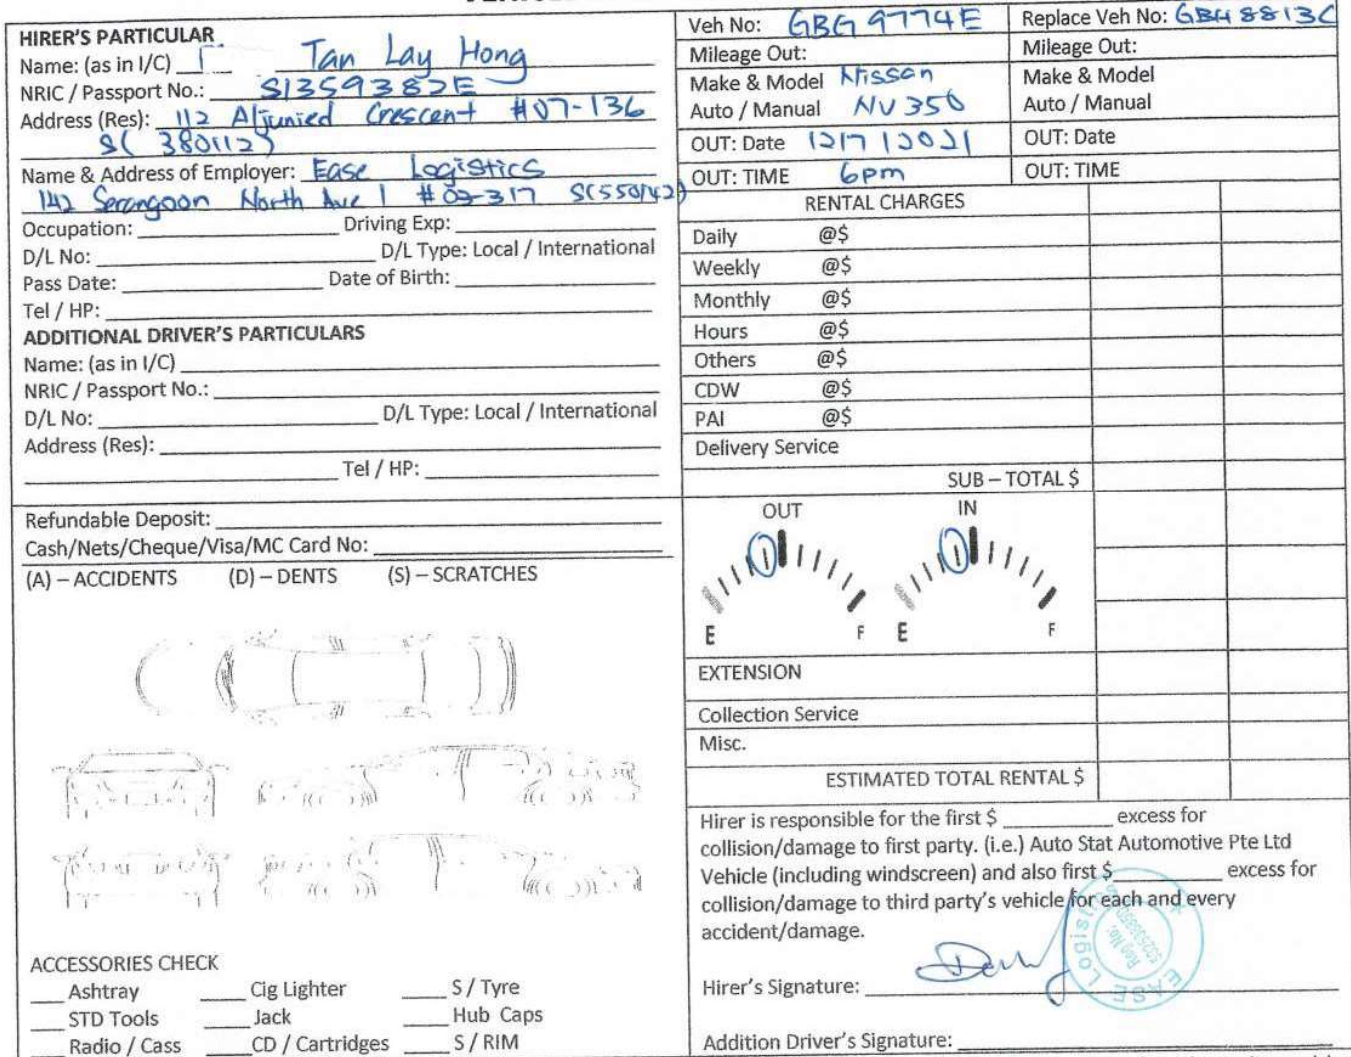 HIRER'S PARTICULAR
Name: (as in I/C) Tan Lay Hong
NRIC / Passport No.: S1359382E
Address (Res): 112 Aljunied Crescent #07-136
S( 380112)
Name & Address of Employer: Ease Logistics
142 Serangoon North Ave 1 #03-317 S(550142)
Occupation: Driving Exp:
D/L No: D/L Type: Local / International
Pass Date: Date of Birth:
Tel / HP:
ADDITIONAL DRIVER'S PARTICULARS
Name: (as in I/C)
NRIC / Passport No.:
D/L No: D/L Type: Local / International
Address (Res):
Tel / HP:
Refundable Deposit:
Cash/Nets/Cheque/Visa/MC Card No:
(A) – ACCIDENTS (D) – DENTS (S) – SCRATCHES
ACCESSORIES CHECK
Ashtray Cig Lighter S / Tyre
STD Tools Jack Hub Caps
Radio / Cass CD / Cartridges S / RIM
Veh No: GBG 9774E Replace Veh No: GBH 8813C
Mileage Out: Mileage Out:
Make & Model Nissan Make & Model
Auto / Manual NV350 Auto / Manual
OUT: Date 12/7/2021 OUT: Date
OUT: TIME 6pm OUT: TIME
RENTAL CHARGES
Daily @$
Weekly @$
Monthly @$
Hours @$
Others @$
CDW @$
PAI @$
Delivery Service
SUB – TOTAL $
OUT IN
E F E F
EXTENSION
Collection Service
Misc.
ESTIMATED TOTAL RENTAL $
Hirer is responsible for the first $ excess for
collision/damage to first party. (i.e.) Auto Stat Automotive Pte Ltd
Vehicle (including windscreen) and also first $ excess for
collision/damage to third party's vehicle for each and every
accident/damage.
Hirer's Signature:
EASE Logist
Reg No:
Addition Driver's Signature: